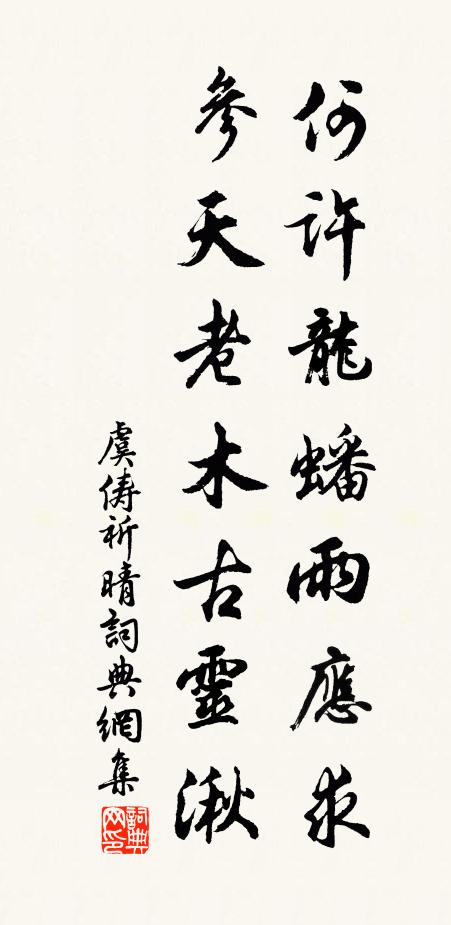 何許龍蟠雨應求
參天老木古靈湫
虞儔祈晴詞典網集
詞典网印